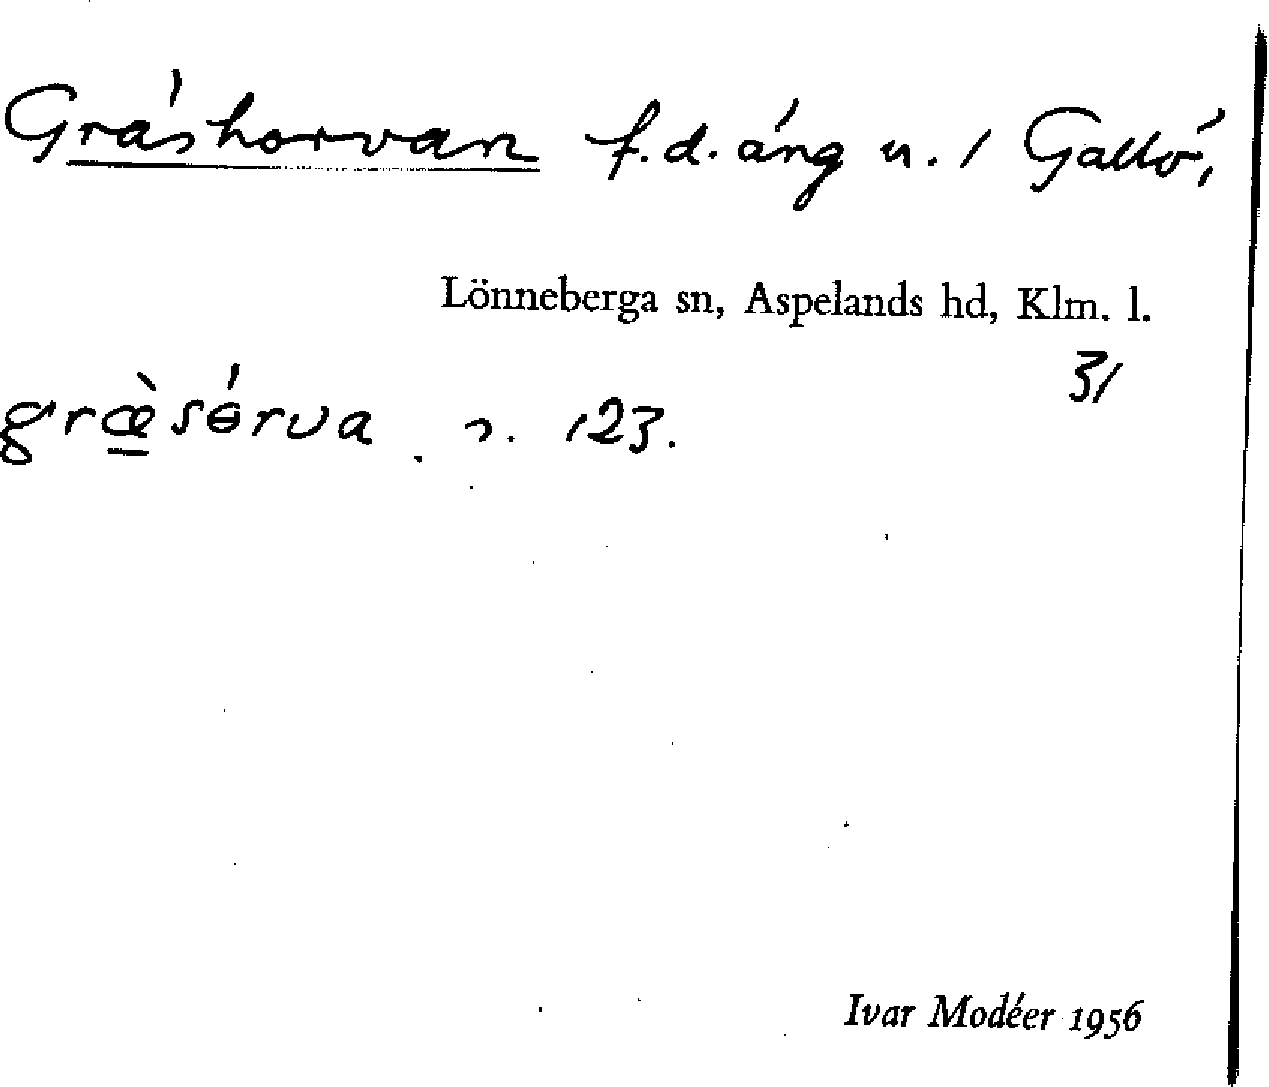 Gräshorvan f.d. äng u. / Gallö,
Lönneberga sn, Aspelands hd, Klm. l.
31
græ̀sɵ́rva s. 123.
Ivar Modéer 1956